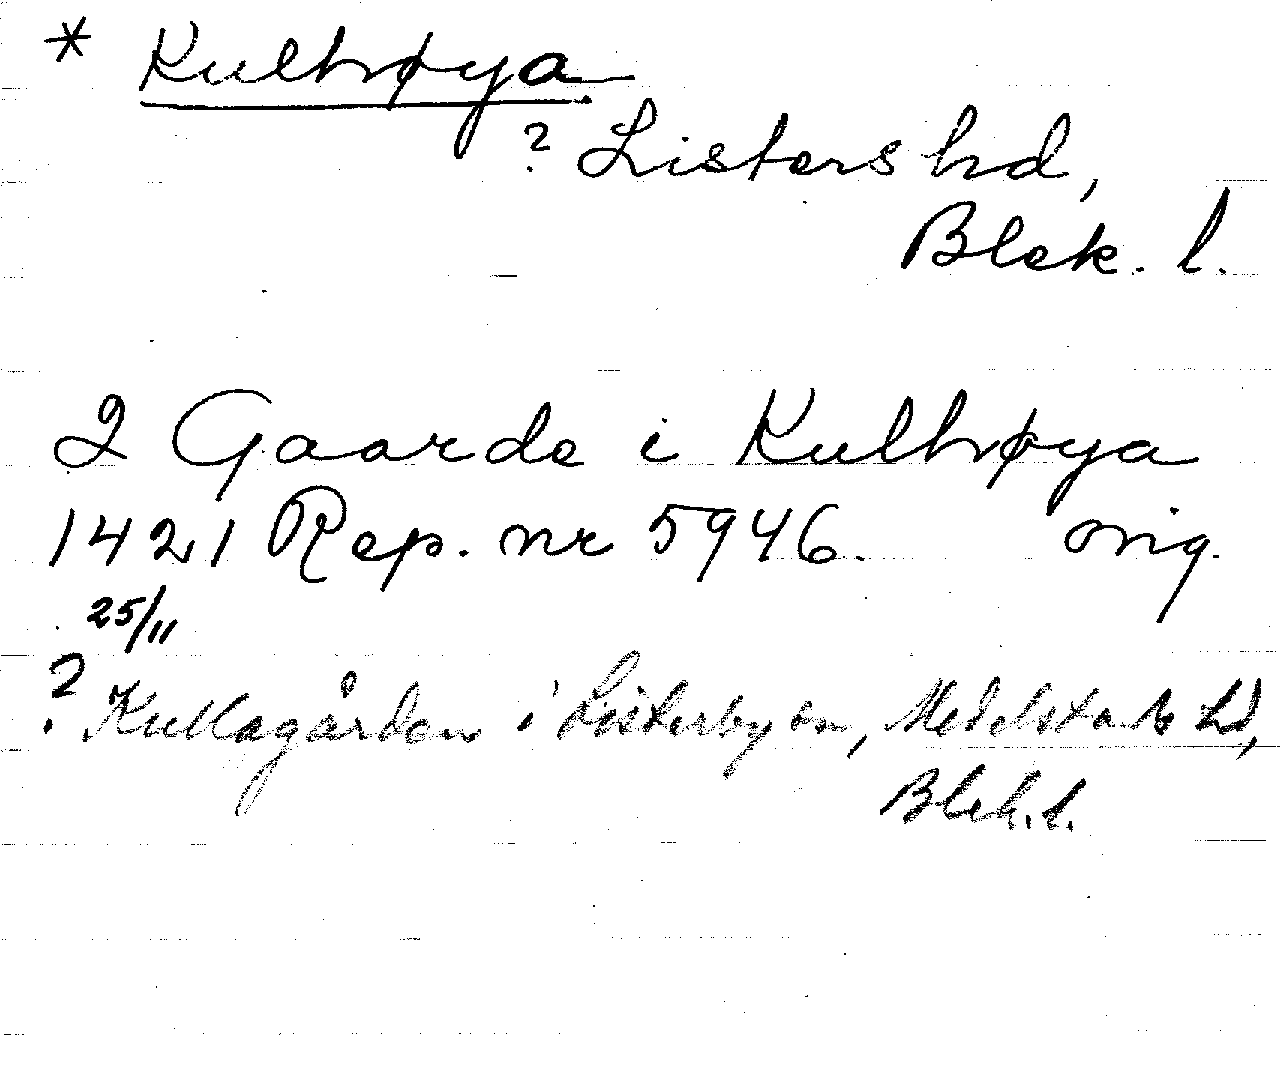 * Kulhøya.
? Listers hd,
Blek. l.
2 Gaarde i Kulhøya
1421 Rep. nr 5946. orig.
25/11
? Kullagården i Listerbyön, Medelstads hd,
Blek. l.